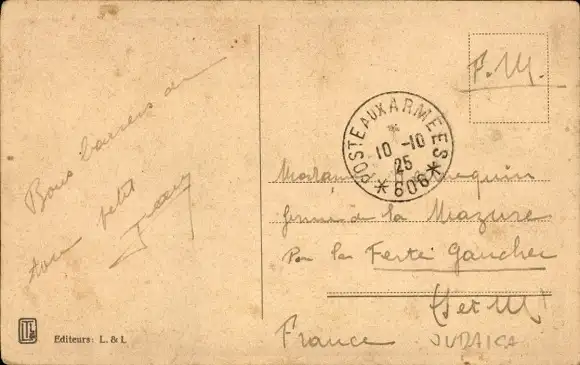 Bons baisers de
ton petit
F.M.
POSTE AUX ARMEES
10 -10
25
*606*
Madame
ferme de la Mazure
Par la Ferté Gaucher
(S et M)
France
Editeurs: L. & L